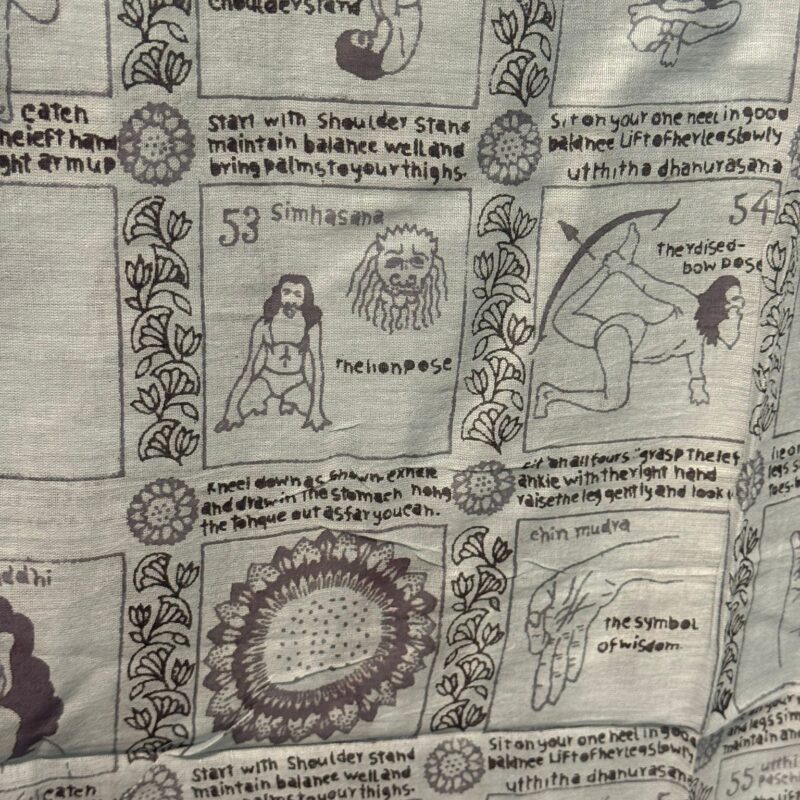 Shoulderstand
catch
the left hand
ght arm up
Start with Shoulder Stand
maintain balance well and
bring palms to your thighs.
Sit on your one heel in good
balance Lift other leg slowly
utthitha dhanurasana
53 Simhasana
The lion pose
54
The raised-
bow pose
Kneel down as shown exhale
and draw in the stomach hang
the tongue out as far you can.
all fours "grasp the lef
ankle with the right hand
raise the leg gently and look
lie on
legs s
toes-
ddhi
chin mudra
the symbol
of wisdom
catch
Start with Shoulder Stand
maintain balance well and
bring palms to your thighs.
Sit on your one heel in good
balance Lift other leg slowly
utthitha dhanurasana
and legs sim
maintain an
55 utthi